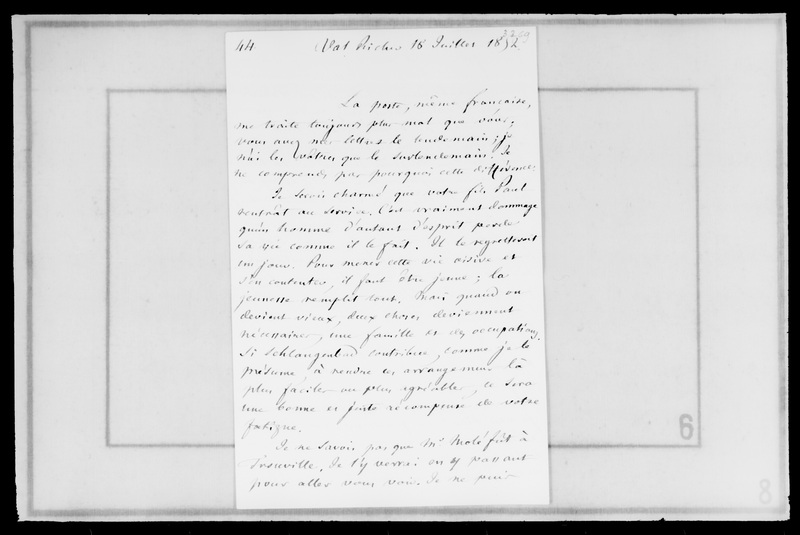 44 Val Richer 18 Juillet 1852
2269
La poste, même française,
me traite toujours plus mal que vous.
Vous avez mes lettres le lendemain ; je
n'ai les vôtres que le surlendemain. Je
ne comprends pas pourquoi cette différence.
Je serois charmé que votre fils Paul
rentrât au service. C'est vraiment dommage
qu'un homme d'autant d'esprit perde
sa vie comme il le fait. Il le regretterait
un jour. Pour mener cette vie oisive et
s'en contenter, il faut être jeune ; la
jeunesse remplit tout. Mais quand on
devient vieux, deux choses deviennent
nécessaires, une famille et des occupations.
Si Schlangenbad contribue, comme je le
présume, à rendre ces arrangemens là
plus faciles ou plus agréables, ce sera
une bonne et juste récompense de votre
fatigue.
Je ne savois pas que Mr Molé fût à
Trouville. Je l'y verrai en y passant
pour aller vous voir. Je ne puis
6
8